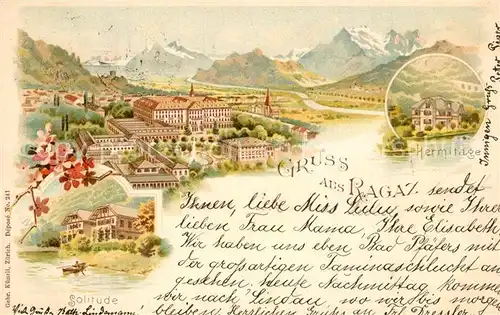 Gebr. Künzli, Zürich. Deposé No. 241
Hermitage
Solitude
GRUSS
AUS RAGAZ.
sendet
Ihnen, liebe Miss Lulu, sowie Ihrer
lieben Frau Mama, Ihre Elisabeth.
Wir haben uns eben Bad Pfäfers mit
der großartigen Taminaschlucht an-
gesehen. Heute Nachmittag kommen
wir nach Lindau wo wir bis morgen
bleiben. Herzlichen Gruß an Frl. Dressler.
Innigen Gruß